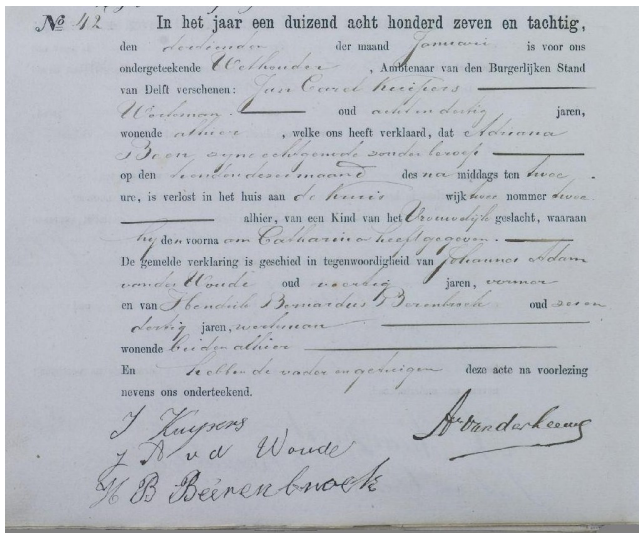 No 42 In het jaar een duizend acht honderd zeven en tachtig,
den dertienden der maand Januari is voor ons
ondergeteekende Wethouder, Ambtenaar van den Burgerlijken Stand
van Delft verschenen: Jan Carel Kuijpers
Werkman oud acht en dertig jaren,
wonende alhier, welke ons heeft verklaard, dat Adriana
Boon, zijne echtgenoote zonder beroep
op den dezer maand des na middags ten twee
ure, is verlost in het huis aan de wijk twee nommer twee
alhier, van een Kind van het Vrouwelijk geslacht, waaraan
hij den voornaam Catharina heeft gegeven.
De gemelde verklaring is geschied in tegenwoordigheid van Johannes Adam
van der Woude oud veertig jaren,
en van Hendrik Bernardus Beerenbroek oud zeven
dertig jaren, werkman
wonende beiden alhier
En hebben de vader en getuigen deze acte na voorlezing
nevens ons onderteekend.
J Kuypers
J A v d Woude
H B Béerenbroek
van der Leeuw